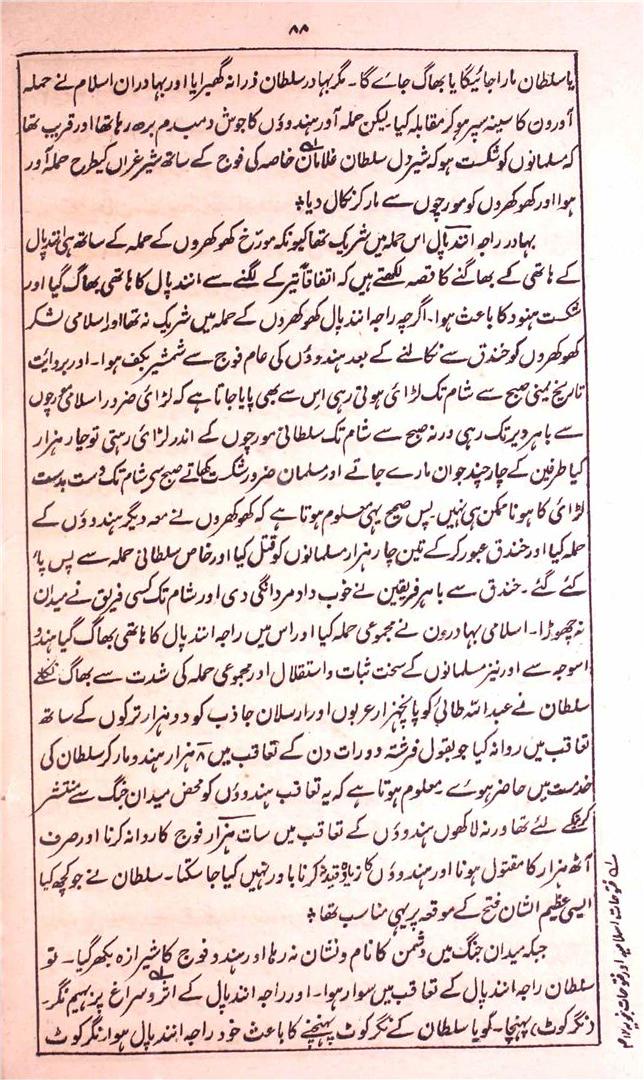 ۸۸
یا سلطان مارا جائیگا یا بھاگ جائے گا۔ مگر بہادر سلطان ذرا نہ گھبرایا اور بہادران اسلام نے حملہ
آورون کا سینہ سپر ہو کر مقابلہ کیا۔ لیکن حملہ آور ہندوؤں کا جوش دمبدم بڑھ رہا تھا اور قریب تھا
کہ مسلمانوں کو شکست ہو کہ شیر دل سلطان غلامان خاصہ کی فوج کے ساتھ شیر غراں کیطرح حملہ آور
ہوا اور کھوکھروں کو مورچوں سے مار کر نکال دیا؞
بہادر راجہ انند پال اس حملہ میں شریک تھا کیونکہ مورخ کھوکھروں کے حملہ کے ساتھ ہی انند پال
کے ہاتھی کے بھاگنے کا قصہ لکھتے ہیں کہ اتفاقاً تیر کے لگنے سے انند پال کا ہاتھی بھاگ گیا اور
شکست ہنود کا باعث ہوا۔ اگرچہ راجہ انند پال کھوکھروں کے حملہ میں شریک نہ تھا اور اسلامی لشکر
کھوکھروں کو خندق سے نکالنے کے بعد ہندوؤں کی عام فوج سے شمشیر بکف ہوا۔ اور بروائت
تاریخ یمینی صبح سے شام تک لڑائی ہوتی رہی اس سے بھی پایا جاتا ہے کہ لڑائی ضرور اسلامی مورچوں
سے باہر دیر تک رہی ورنہ صبح سے شام تک سلطانی مورچوں کے اندر لڑائی رہتی تو چار ہزار
کیا طرفین کے چار چند جوان مارے جاتے اور مسلمان ضرور شکست کھاتے صبح سی شام تک دست بدست
لڑائی کا ہونا ممکن ہی نہیں۔ پس صحیح یہی معلوم ہوتا ہے کہ کھوکھروں نے معہ دیگر ہندوؤں کے
حملہ کیا اور خندق عبور کر کے تین چار ہزار مسلمانوں کو قتل کیا اور خاص سلطانی حملہ سے پس پا
کئے گئے۔ خندق سے باہر فریقین نے خوب داد مردانگی دی اور شام تک کسی فریق نے میدان
نہ چھوڑا۔ اسلامی بہادرون نے مجموعی حملہ کیا اور اس میں راجہ انند پال کا ہاتھی بھاگ گیا ہندو
اسوجہ سے اور نیز مسلمانوں کے سخت ثبات و استقلال اور مجموعی حملہ کی شدت سے بھاگ نکلے
سلطان نے عبد اللہ طائی کو پانچہزار عربوں اور ارسلان جاذب کو دو ہزار ترکوں کے ساتھ
تعاقب میں روانہ کیا جو بقول فرشتہ دو رات دن کے تعاقب میں ۸ ہزار ہندو مار کر سلطان کی
خدمت میں حاضر ہوے۔ معلوم ہوتا ہے کہ یہ تعاقب ہندوؤں کو محض میدان جنگ سے منتشر
کرنیکے لئے تھا ورنہ لاکھوں ہندوؤں کے تعاقب میں سات ہزار فوج کا روانہ کرنا اور صرف
آٹھ ہزار کا مقتول ہونا اور ہندوؤں کا زیادہ قید نہ کرنا باور نہیں کیا جا سکتا۔ سلطان نے جو کچھ کیا
ایسی عظیم الشان فتح کے موقعہ پر یہی مناسب تھا؞
جبکہ میدان جنگ میں دشمن کا نام و نشان نہ رہا اور ہندو فوج کا شیرازہ بکھر گیا۔ تو
سلطان راجہ انند پال کے تعاقب میں سوار ہوا۔ اور راجہ انند پال کے اثر و سراغ پر بہیم نگر۔
(نگر کوٹ) پہنچا۔ گویا سلطان کے نگر کوٹ پہنچنے کا باعث خود راجہ انند پال ہوا۔ نگر کوٹ
فتوحات اسلامیہ اور فتوحات